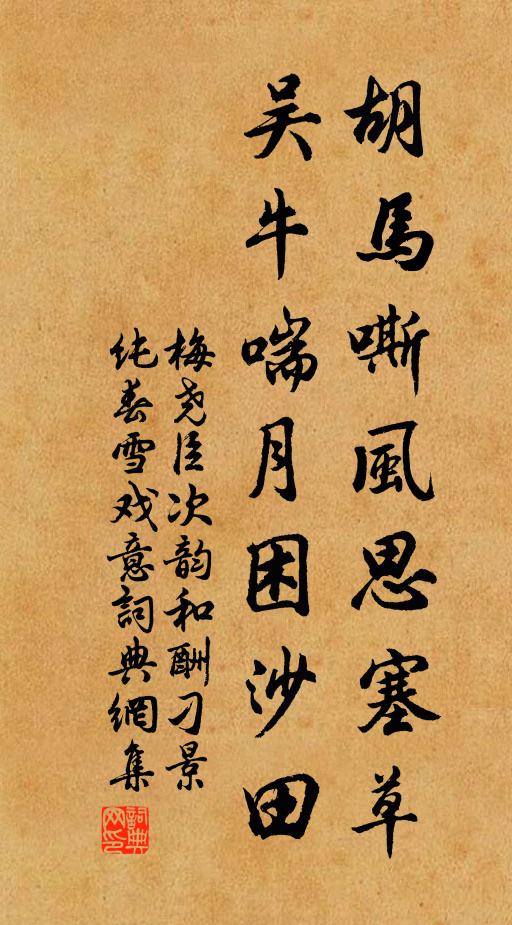 胡馬嘶風思塞草
吴牛喘月困沙田
梅尧臣次韵和酬刁景
纯春雪戏意詞典網集
詞典
网印